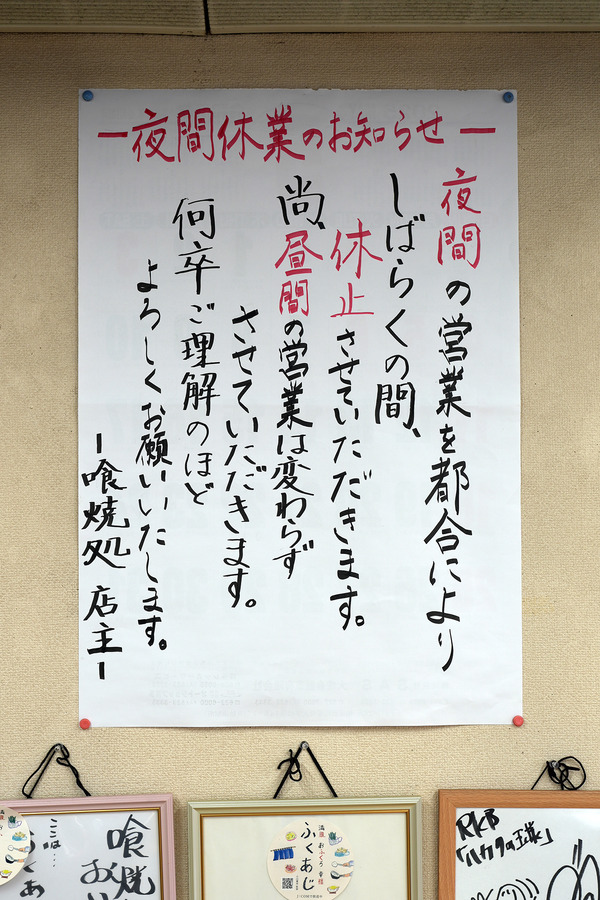 ー夜間休業のお知らせー
夜間の営業を都合により
しばらくの間、
休止させていただきます。
尚、昼間の営業は変わらず
させていただきます。
何卒ご理解のほど
よろしくお願いいたします。
ー喰焼処 店主ー
喰焼
ここは…
満腹 おふくろ 幸福
ふくあじ
RKB